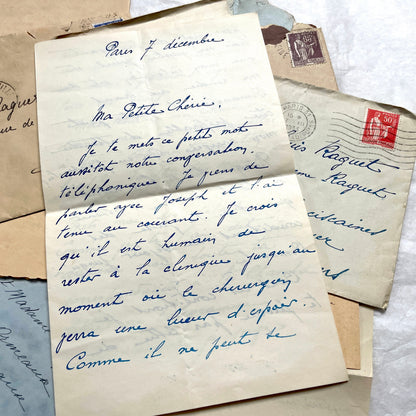 Paris 7 décembre
Ma Petite Chérie,
Je te mets ce petit mot
aussitôt notre conversation
téléphonique. Je viens de
parler avec Joseph et t'ai
tenue au courant. Je crois
qu'il est humain de
rester à la clinique jusqu'au
moment où le chirurgien
verra une lueur d'espoir.
Comme il ne peut se
Raguet
rue de
50
Raguet
Raguet